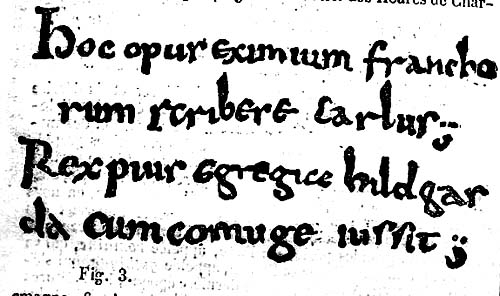 des Heures de Char-
Hoc opus eximium francho
rum scribere Carlus;
Rex pius egregia hildgar
da cum coniuge iussit;
Fig. 3.